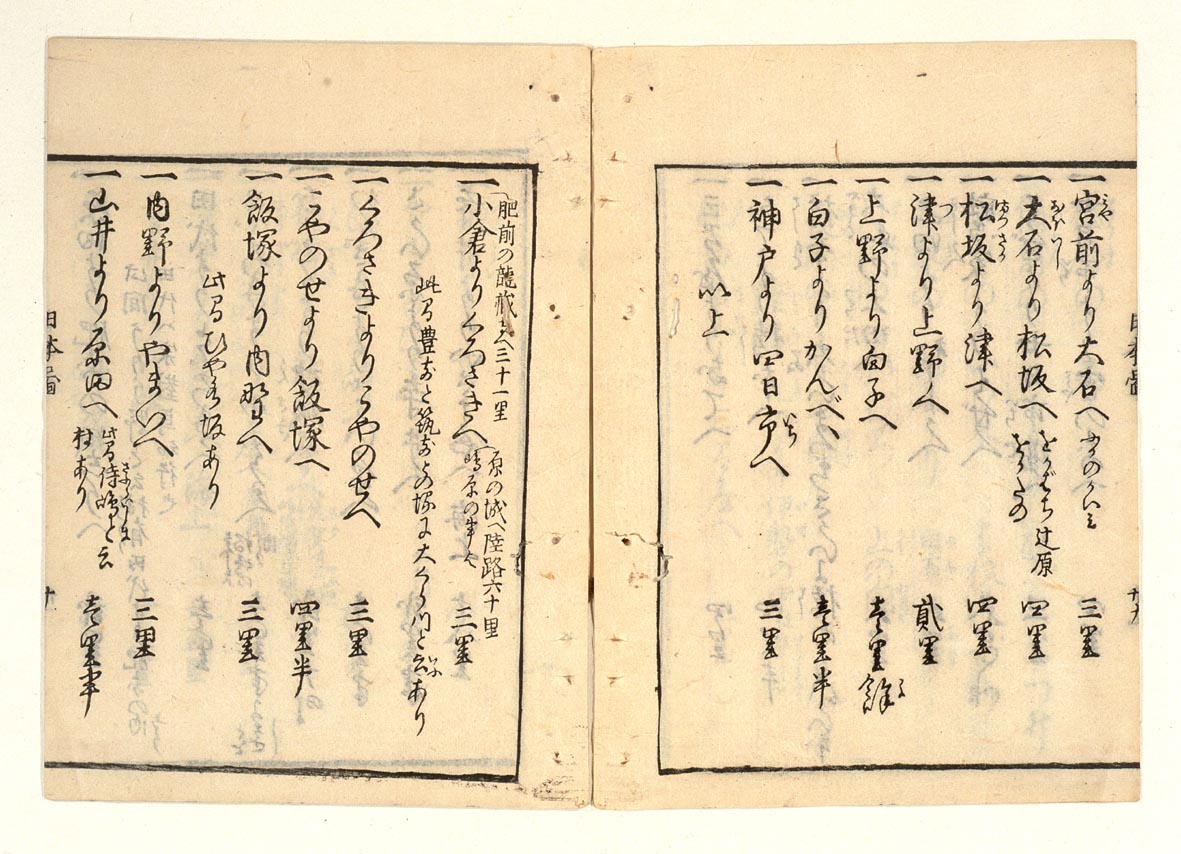 一宮前より大石へ 三里
一大石より松坂へ 辻原 四里
一松坂より津へ 四里
一津より上野へ 貳里
一上野より白子へ 壱里餘
一白子よりかんべへ 壱里半
一神戸より四日市へ 三里
以上
肥前の龍蔵寺へ三十一里 原の城へ陸路六十里
一小倉よりくろさきへ 嶋原の事也 三里
此間豊前と筑前との堺に大くら川と云あり
一くろさきよりこやのせへ 三里
一こやのせより飯塚へ 四里半
一飯塚より内野へ 三里
此間ひや水坂あり
一内野よりやまいへ 三里
一山井より原田へ 此間侍嶋と云村あり 壱里半